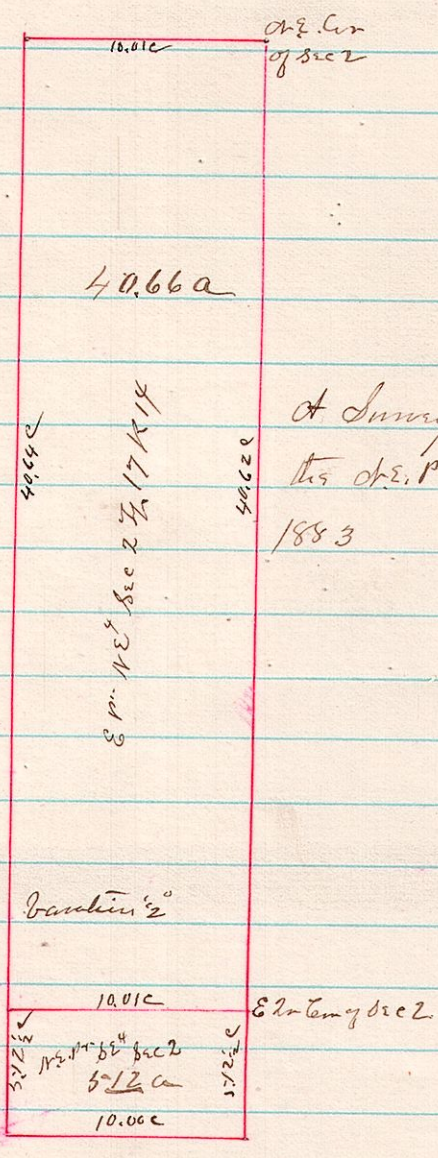 N.E. Cor
of Sec 2
10.01c
40.66 a
40.64c
40.62c
E Pt NE4 Sec 2 T. 17 R 14
A Survey
the N.E. P
1883
Variation 2°
10.01c
E Qr Cor of Sec 2.
5.12½ c
N.E. Pt SE4 Sec 2
5.12 a
5.12½ c
10.00c